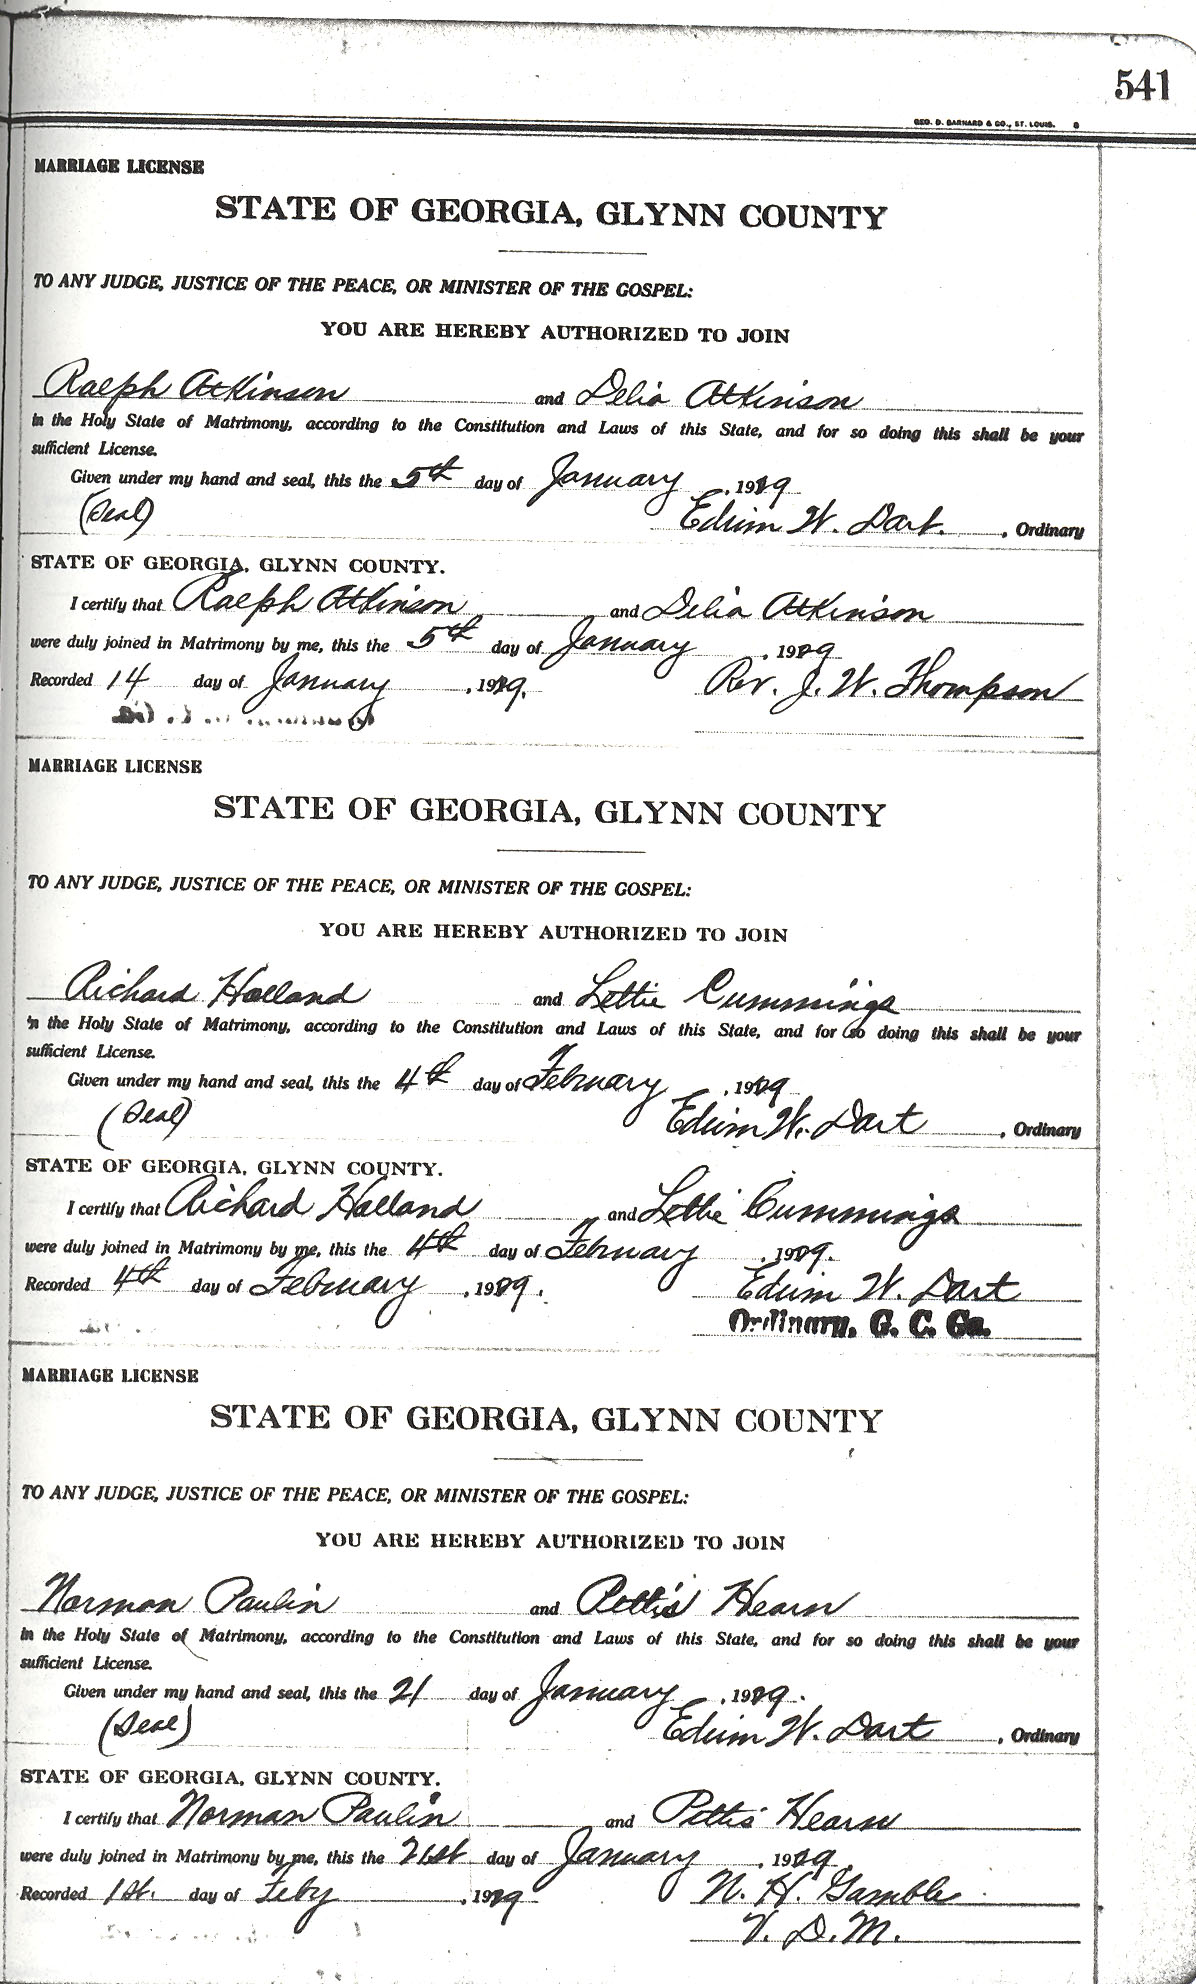 541
GEO. D. BARNARD & CO., ST. LOUIS. 8
MARRIAGE LICENSE
STATE OF GEORGIA, GLYNN COUNTY
TO ANY JUDGE, JUSTICE OF THE PEACE, OR MINISTER OF THE GOSPEL:
YOU ARE HEREBY AUTHORIZED TO JOIN
Ralph Atkinson and Delia Atkinson
in the Holy State of Matrimony, according to the Constitution and Laws of this State, and for so doing this shall be your
sufficient License.
Given under my hand and seal, this the 5th day of January, 1929
(Seal) Edwin W. Dart. , Ordinary
STATE OF GEORGIA, GLYNN COUNTY.
I certify that Ralph Atkinson and Delia Atkinson
were duly joined in Matrimony by me, this the 5th day of January, 1929
Recorded 14 day of January, 1929. Rev. J. W. Thompson
MARRIAGE LICENSE
STATE OF GEORGIA, GLYNN COUNTY
TO ANY JUDGE, JUSTICE OF THE PEACE, OR MINISTER OF THE GOSPEL:
YOU ARE HEREBY AUTHORIZED TO JOIN
Richard Holland and Lettie Cummings
in the Holy State of Matrimony, according to the Constitution and Laws of this State, and for so doing this shall be your
sufficient License.
Given under my hand and seal, this the 4th day of February, 1929
(Seal) Edwin W. Dart , Ordinary
STATE OF GEORGIA, GLYNN COUNTY.
I certify that Richard Holland and Lettie Cummings
were duly joined in Matrimony by me, this the 4th day of February, 1929.
Recorded 4th day of February, 1929. Edwin W. Dart
Ordinary, G. C. Ga.
MARRIAGE LICENSE
STATE OF GEORGIA, GLYNN COUNTY
TO ANY JUDGE, JUSTICE OF THE PEACE, OR MINISTER OF THE GOSPEL:
YOU ARE HEREBY AUTHORIZED TO JOIN
Norman Paulin and Pettis Hearn
in the Holy State of Matrimony, according to the Constitution and Laws of this State, and for so doing this shall be your
sufficient License.
Given under my hand and seal, this the 21 day of January, 1929.
(Seal) Edwin W. Dart , Ordinary
STATE OF GEORGIA, GLYNN COUNTY.
I certify that Norman Paulin and Pettis Hearn
were duly joined in Matrimony by me, this the 21st day of January, 1929
Recorded 1st. day of Feby, 1929 N. H. Gamble
V. D. M.